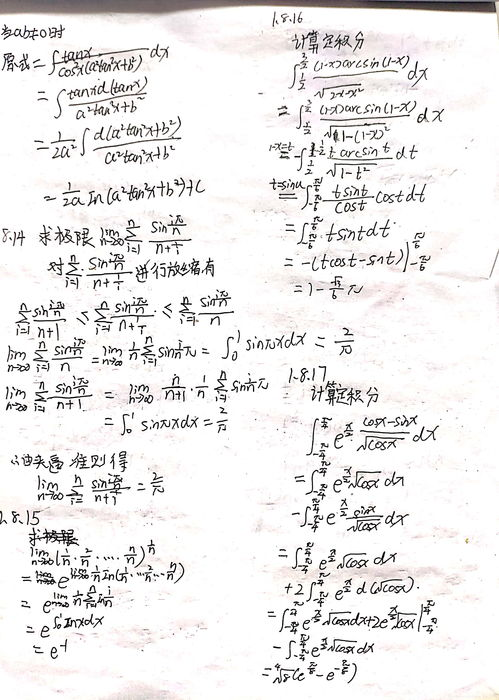 当ab≠0时
原式=∫tanx/cos²x(a²tan²x+b²) dx
=∫tanxd(tanx)/a²tan²x+b²
=1/2a²∫d(a²tan²x+b²)/a²tan²x+b²
=1/2a ln(a²tan²x+b²)+C
8.14 求极限 lim n→∞ Σ i=1 n sin iπ/n / n+1/i
对Σ i=1 n sin iπ/n / n+1/i 进行放缩有
Σ i=1 n sin iπ/n / n+1 ≤ Σ i=1 n sin iπ/n / n+1/i ≤ Σ i=1 n sin iπ/n / n
lim n→∞ Σ i=1 n sin iπ/n / n = lim n→∞ 1/n Σ i=1 n sin i/n π = ∫₀¹ sinπxdx = 2/π
lim n→∞ Σ i=1 n sin iπ/n / n+1 = lim n→∞ n/n+1 · 1/n Σ i=1 n sin i/n π
=∫₀¹ sinπxdx = 2/π
由夹逼准则得
lim n→∞ Σ i=1 n sin iπ/n / n+1/i = 2/π
1.8.15
求极限
lim n→∞ (1/n · 2/n · ···· n/n)^1/n
= e^lim n→∞ 1/n ln(1/n · 2/n ··· n/n)
= e^lim n→∞ 1/n Σ i=1 n ln i/n
= e^∫₀¹ lnxdx
= e⁻¹
1.8.16
计算定积分
∫ 1/2 3/2 (1-x)arcsin(1-x)/√2x-x² dx
=∫ 1/2 3/2 (1-x)arcsin(1-x)/√1-(1-x)² dx
1-x=t = -∫ 1/2 -1/2 t arcsint/√1-t² dt
t=sinu = ∫ -π/6 π/6 tsint/cost costdt
=∫ -π/6 π/6 tsintdt
= -(tcost-sint)| -π/6 π/6
= 1-√3/6 π
1.8.17
计算定积分
∫ -π/4 π/4 e^x/2 cosx-sinx/√cosx dx
=∫ -π/4 π/4 e^x/2 √cosx dx
-∫ -π/4 π/4 e^x/2 sinx/√cosx dx
=∫ -π/4 π/4 e^x/2 √cosx dx
+2∫ -π/4 π/4 e^x/2 d(√cosx).
=∫ -π/4 π/4 e^x/2 √cosxdx+2e^x/2 √cosx| -π/4 π/4
-∫ -π/4 π/4 e^x/2 √cosx dx
=⁴√8(e^π/8-e^-π/8)